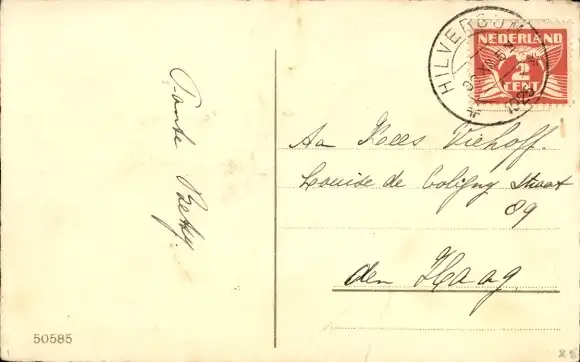 Tante Betsy.
HILVERSUM
1928
NEDERLAND
2
CENT
Aa Kees Viehoff.
Louise de Coligny Straat
89
den Haag
50585